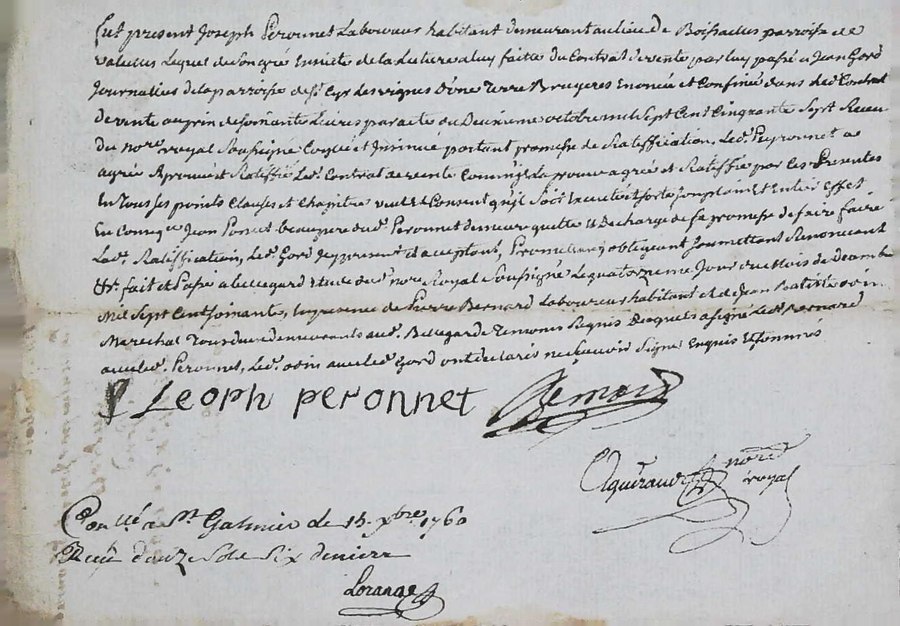 fut present Joseph Peronnet Laboureur habitant demeurant au lieu de Boissailles parroisse de
valeilles Lequel de son gré Ensuite de la Lecture a luy faitte du Contrat de vente par luy passé a Jean Gord
Journallier de la parroisse de St Cyr Les vignes d'une Terre Bruyeres Enoncée et Confinée dans led. Contrat
de vente au prix de soixante Livres par acte du Deuxieme octobre mil Sept Cent Cinquante Sept Receu
du nore royal Soussigné Conllé et Insinué portant promesse de Ratiffication, Led. Peyronnet a
agréé aprouvé et Ratiffié Led. Contrat de vente Comme il aprouve agrée et Ratiffie par Ces Presentes
En Tous ses points Clauses et Chapitre veut et Consent qu'il Soit Executé et sorte son plain et Entier effet
En Conseqce Jean beaupere dud. Peronnet demeure quitte et Decharge de sa promesse de faire faire
Lad. Ratiffication, Led. Gord icy present et acceptant, Promettant obligeant Soumettant Renonceant
&r. fait et Passé a bellegard Etude du nore Royal Soussigné Le quatorzieme Jour du Mois de Decembre
Mil Sept Cent Soixante, En presence de Pierre Bernard Laboureur habitant et de Jean Batiste
Marechal Tous deux demeurants aud. Bellegard Temoins Requis Desquels a signé led. Bernard
avec led. Peronnet, Led. avec led. Gord ont declaré ne Sçavoir Signer Enquis et Sommes
Leoph peronnet
nore
royal
Con llé a St Galmier le 15. xbre 1760
Reçu douze Sols Six deniers
Lorange